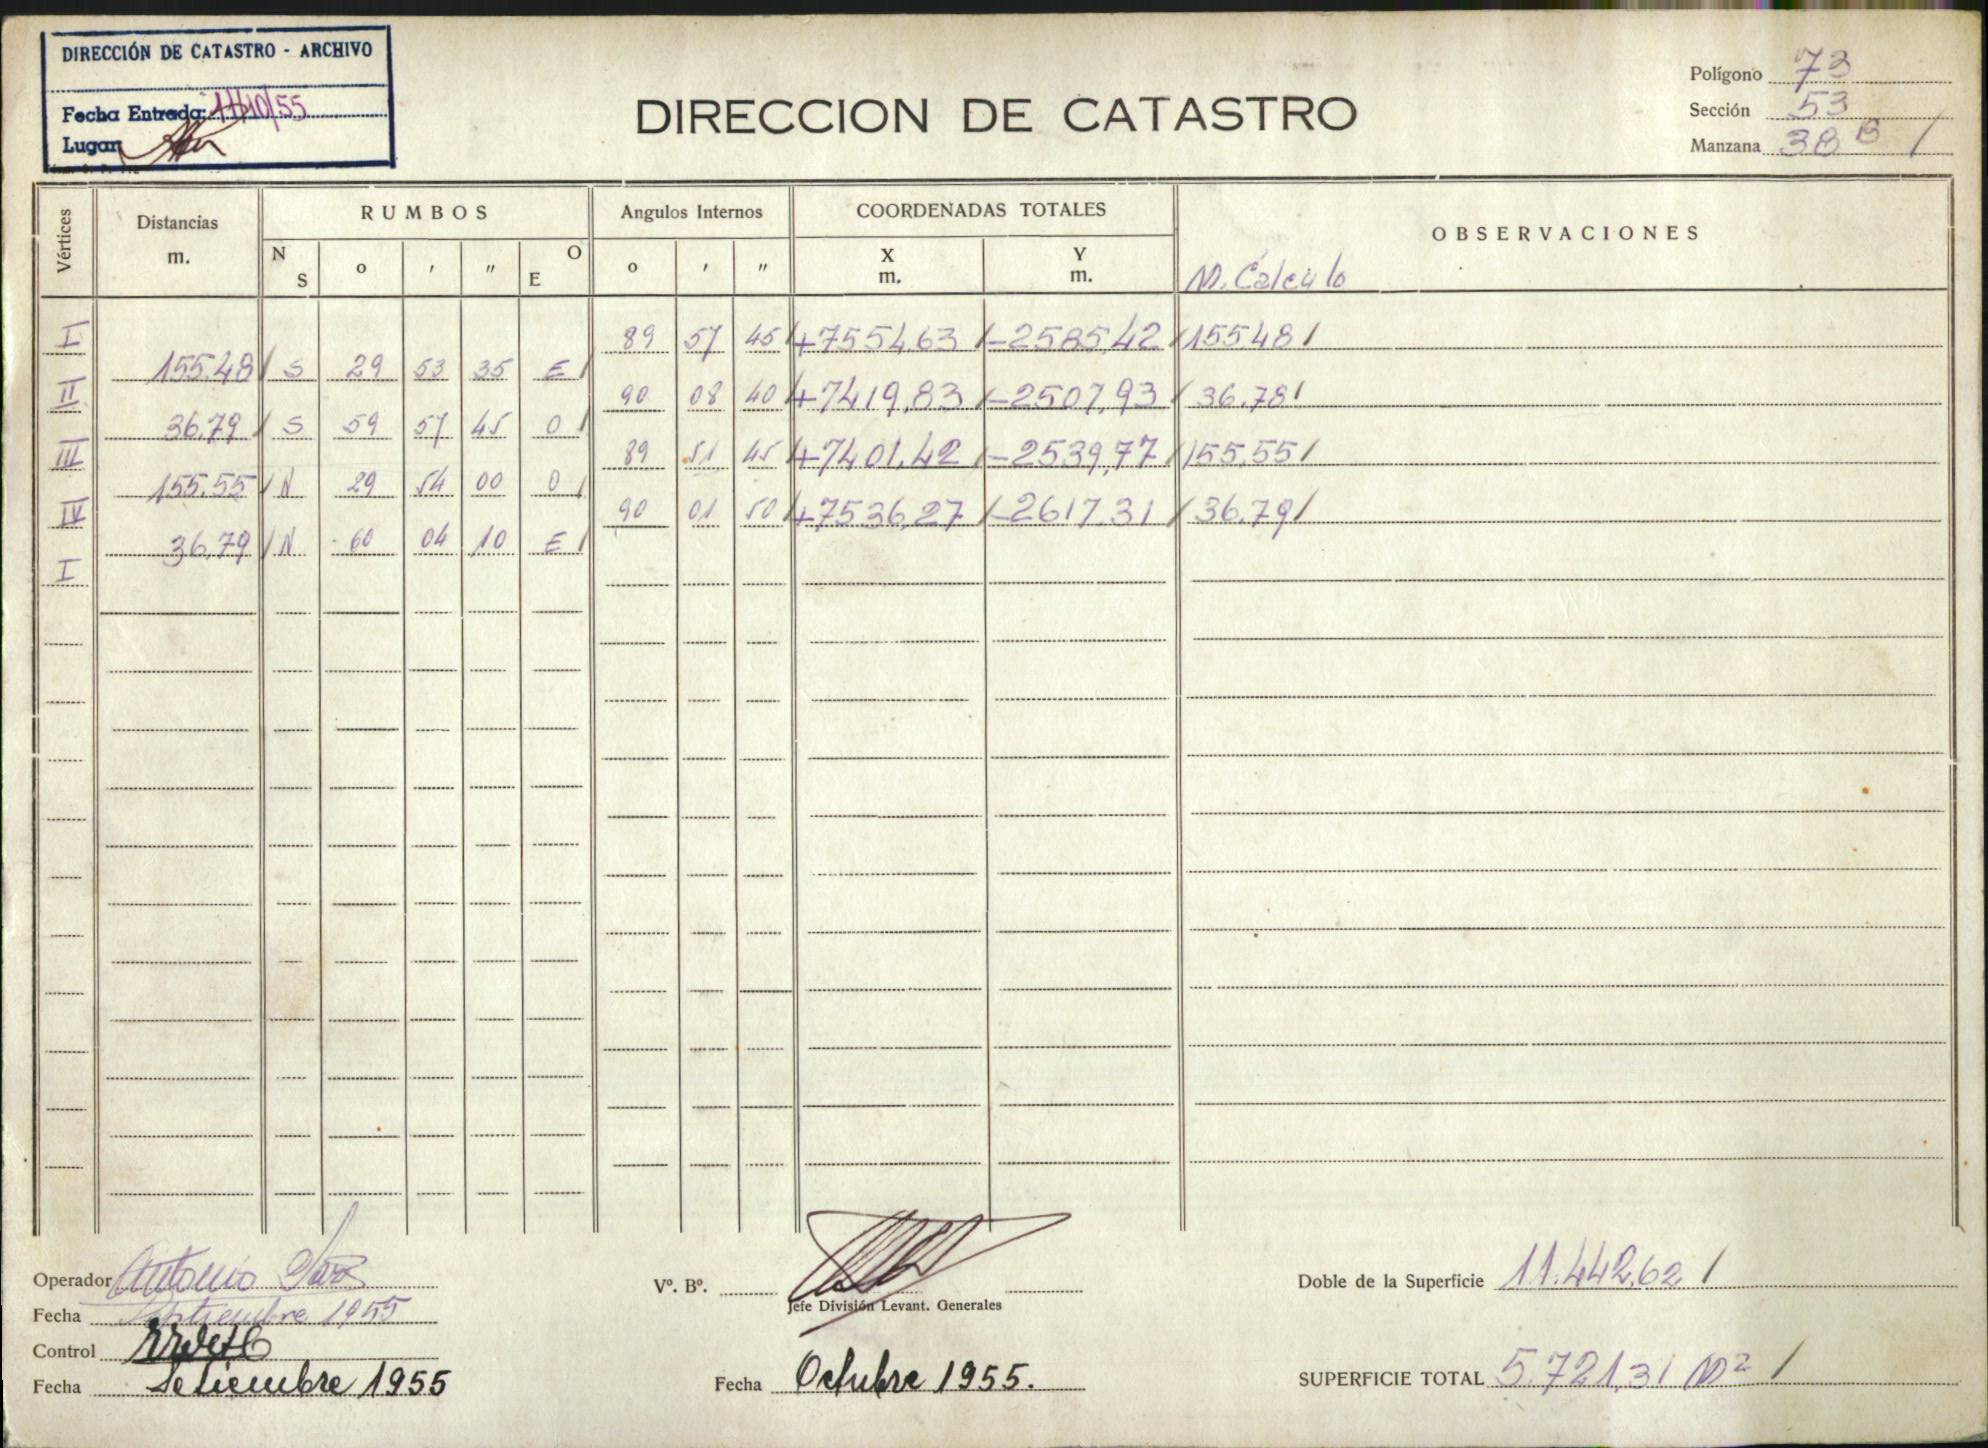 DIRECCIÓN DE CATASTRO - ARCHIVO
Fecha Entrada: 11/10/55
Lugar
DIRECCION DE CATASTRO
Polígono 73
Sección 53
Manzana 38 B /
Vértices
Distancias m.
RUMBOS
N S o ' " O E
Angulos Internos
o ' "
COORDENADAS TOTALES
X m. Y m.
OBSERVACIONES
M. Calculo
I 89 57 45 / +7554,63 / -2585,42 / 155.48 /
155.48 / S 29 53 35 E /
II 90 08 40 / +7419,83 / -2507,93 / 36.78 /
36.79 / S 59 57 45 O /
III 89 51 45 / +7401,42 / -2539,77 / 155.55 /
155.55 / N 29 54 00 O /
IV 90 01 50 / +7536,27 / -2617,31 / 36.79 /
36.79 / N 60 04 10 E /
I
Operador Antonio
Fecha Septiembre 1955
Control
Fecha Setiembre 1955
Vº. Bº.
Jefe División Levant. Generales
Fecha Octubre 1955.
Doble de la Superficie 11.442,62 /
SUPERFICIE TOTAL 5.721,31 M2 /